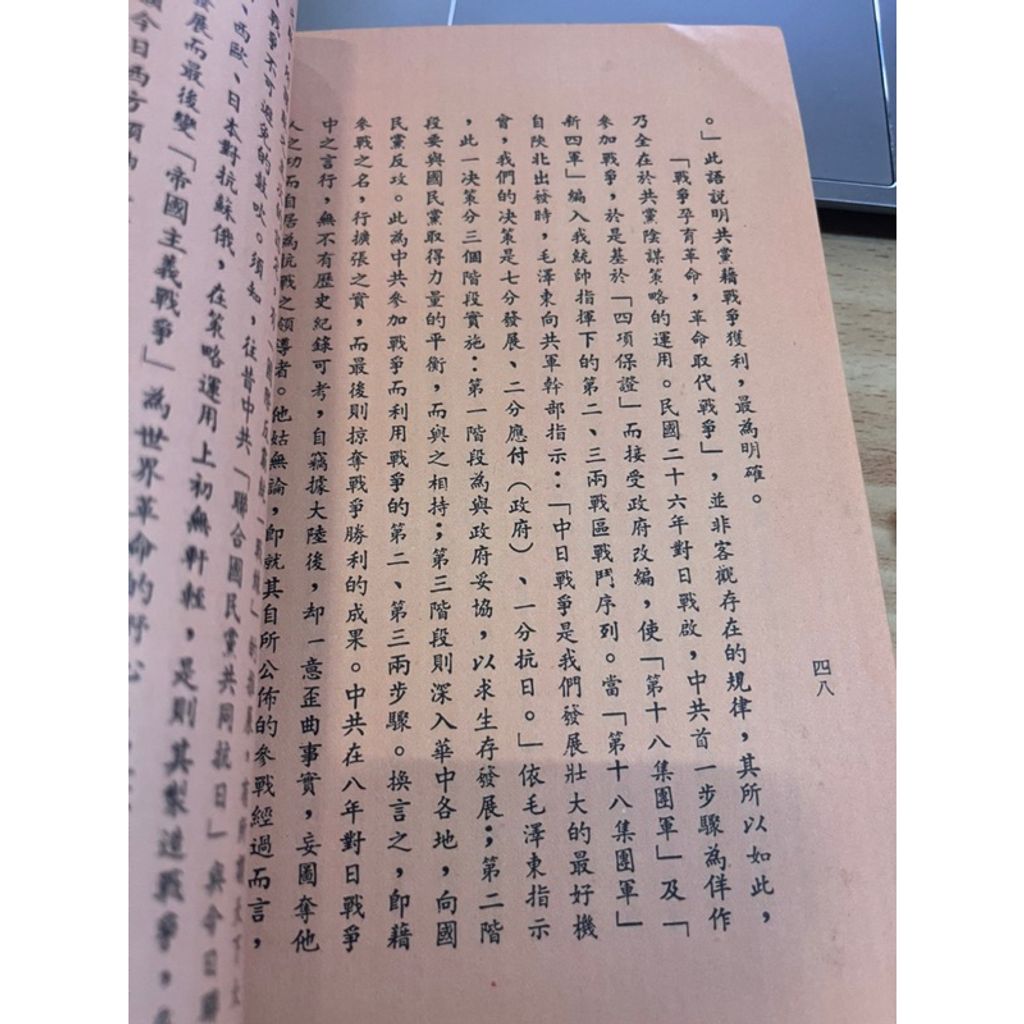 。」此語説明共黨藉戰爭獲利，最為明確。
「戰爭孕有革命，革命取代戰爭」，並非客觀存在的規律，其所以如此，
乃全在於共黨陰謀策略的運用。民國二十六年對日戰啟，中共首一步驟為佯作
參加戰爭，於是基於「四項保證」而接受政府改編，使「第十八集團軍」及「
新四軍」編入我統帥指揮下的第二、三兩戰區戰鬥序列。當「第十八集團軍」
自陝北出發時，毛澤東向共軍幹部指示：「中日戰爭是我們發展壯大的最好機
會，我們的决策是七分發展、二分應付（政府）、一分抗日。」依毛澤東指示
，此一决策分三個階段實施：第一階段為與政府妥協，以求生存發展；第二階
段要與國民黨取得力量的平衡，而與之相持；第三階段則深入華中各地，向國
民黨反攻。此為中共參加戰爭而利用戰爭的第二、第三兩步驟。換言之，即藉
參戰之名，行擴張之實，而最後則掠奪戰爭勝利的成果。中共在八年對日戰爭
中之言行，無不有歷史紀錄可考，自竊據大陸後，却一意歪曲事實，妄圖奪他
人之功而自居為抗戰之領導者。他姑無論，即就其自所公佈的參戰經過而言，
四八
戰爭不可避免的鼓吹。須知，往昔中共「聯合國民黨共同抗日」與今日聯
、西歐、日本對抗蘇俄，在策略運用上初無軒輊，是則其製造戰爭，
發展而最後變「帝國主義戰爭」為世界革命的野心
今日西方